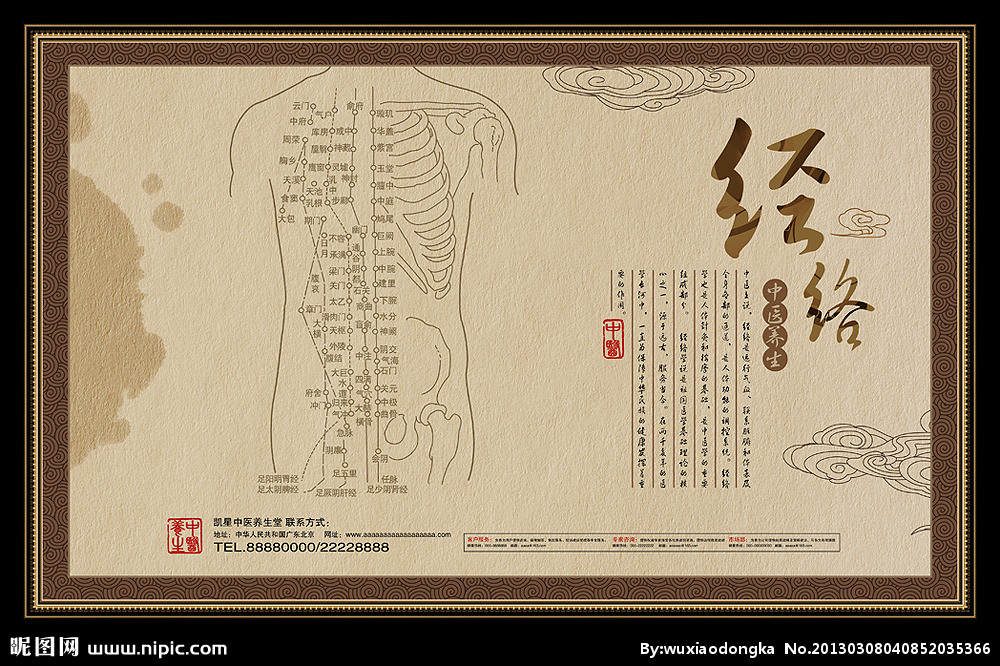 经络
中医养生
中医上说，经络是运行气血、联系脏腑和体表及
全身各部的通道，是人体功能的调控系统。经络
学也是人体针灸和按摩的基础，是中医学的重要
组成部分。 经络学说是祖国医学基础理论的核
心之一，源于远古，服务当今。在两千多年的医
学长河中，一直为保障中华民族的健康发挥着重
要的作用。
中醫
云门
俞府
气户
璇玑
中府
库房
彧中
华盖
周荣
屋翳
神藏
紫宫
胸乡
膺窗
灵墟
玉堂
天溪
乳中
神封
膻中
天池
食窦
乳根
步廊
中庭
大包
期门
鸠尾
幽门
日月
不容
巨阙
通谷
承满
上脘
梁门
阴都
中脘
腹哀
关门
石关
建里
太乙
商曲
下脘
章门
滑肉门
水分
大横
天枢
肓俞
神阙
外陵
阴交
腹结
中注
气海
大巨
石门
水道
四满
府舍
气穴
关元
归来
大赫
中极
冲门
气冲
横骨
曲骨
急脉
阴廉
会阴
足五里
足阳明胃经
任脉
足太阴脾经
足厥阴肝经
足少阴肾经
中醫養生
凯星中医养生堂 联系方式：
地址：中华人民共和国广东北京 网址：www.aaaaaaaaaaaaaaaaa.com
TEL.88880000/22228888
客户服务：
专家咨询：
市场部：
昵图网 www.nipic.com
By:wuxiaodongka No.20130308040852035366